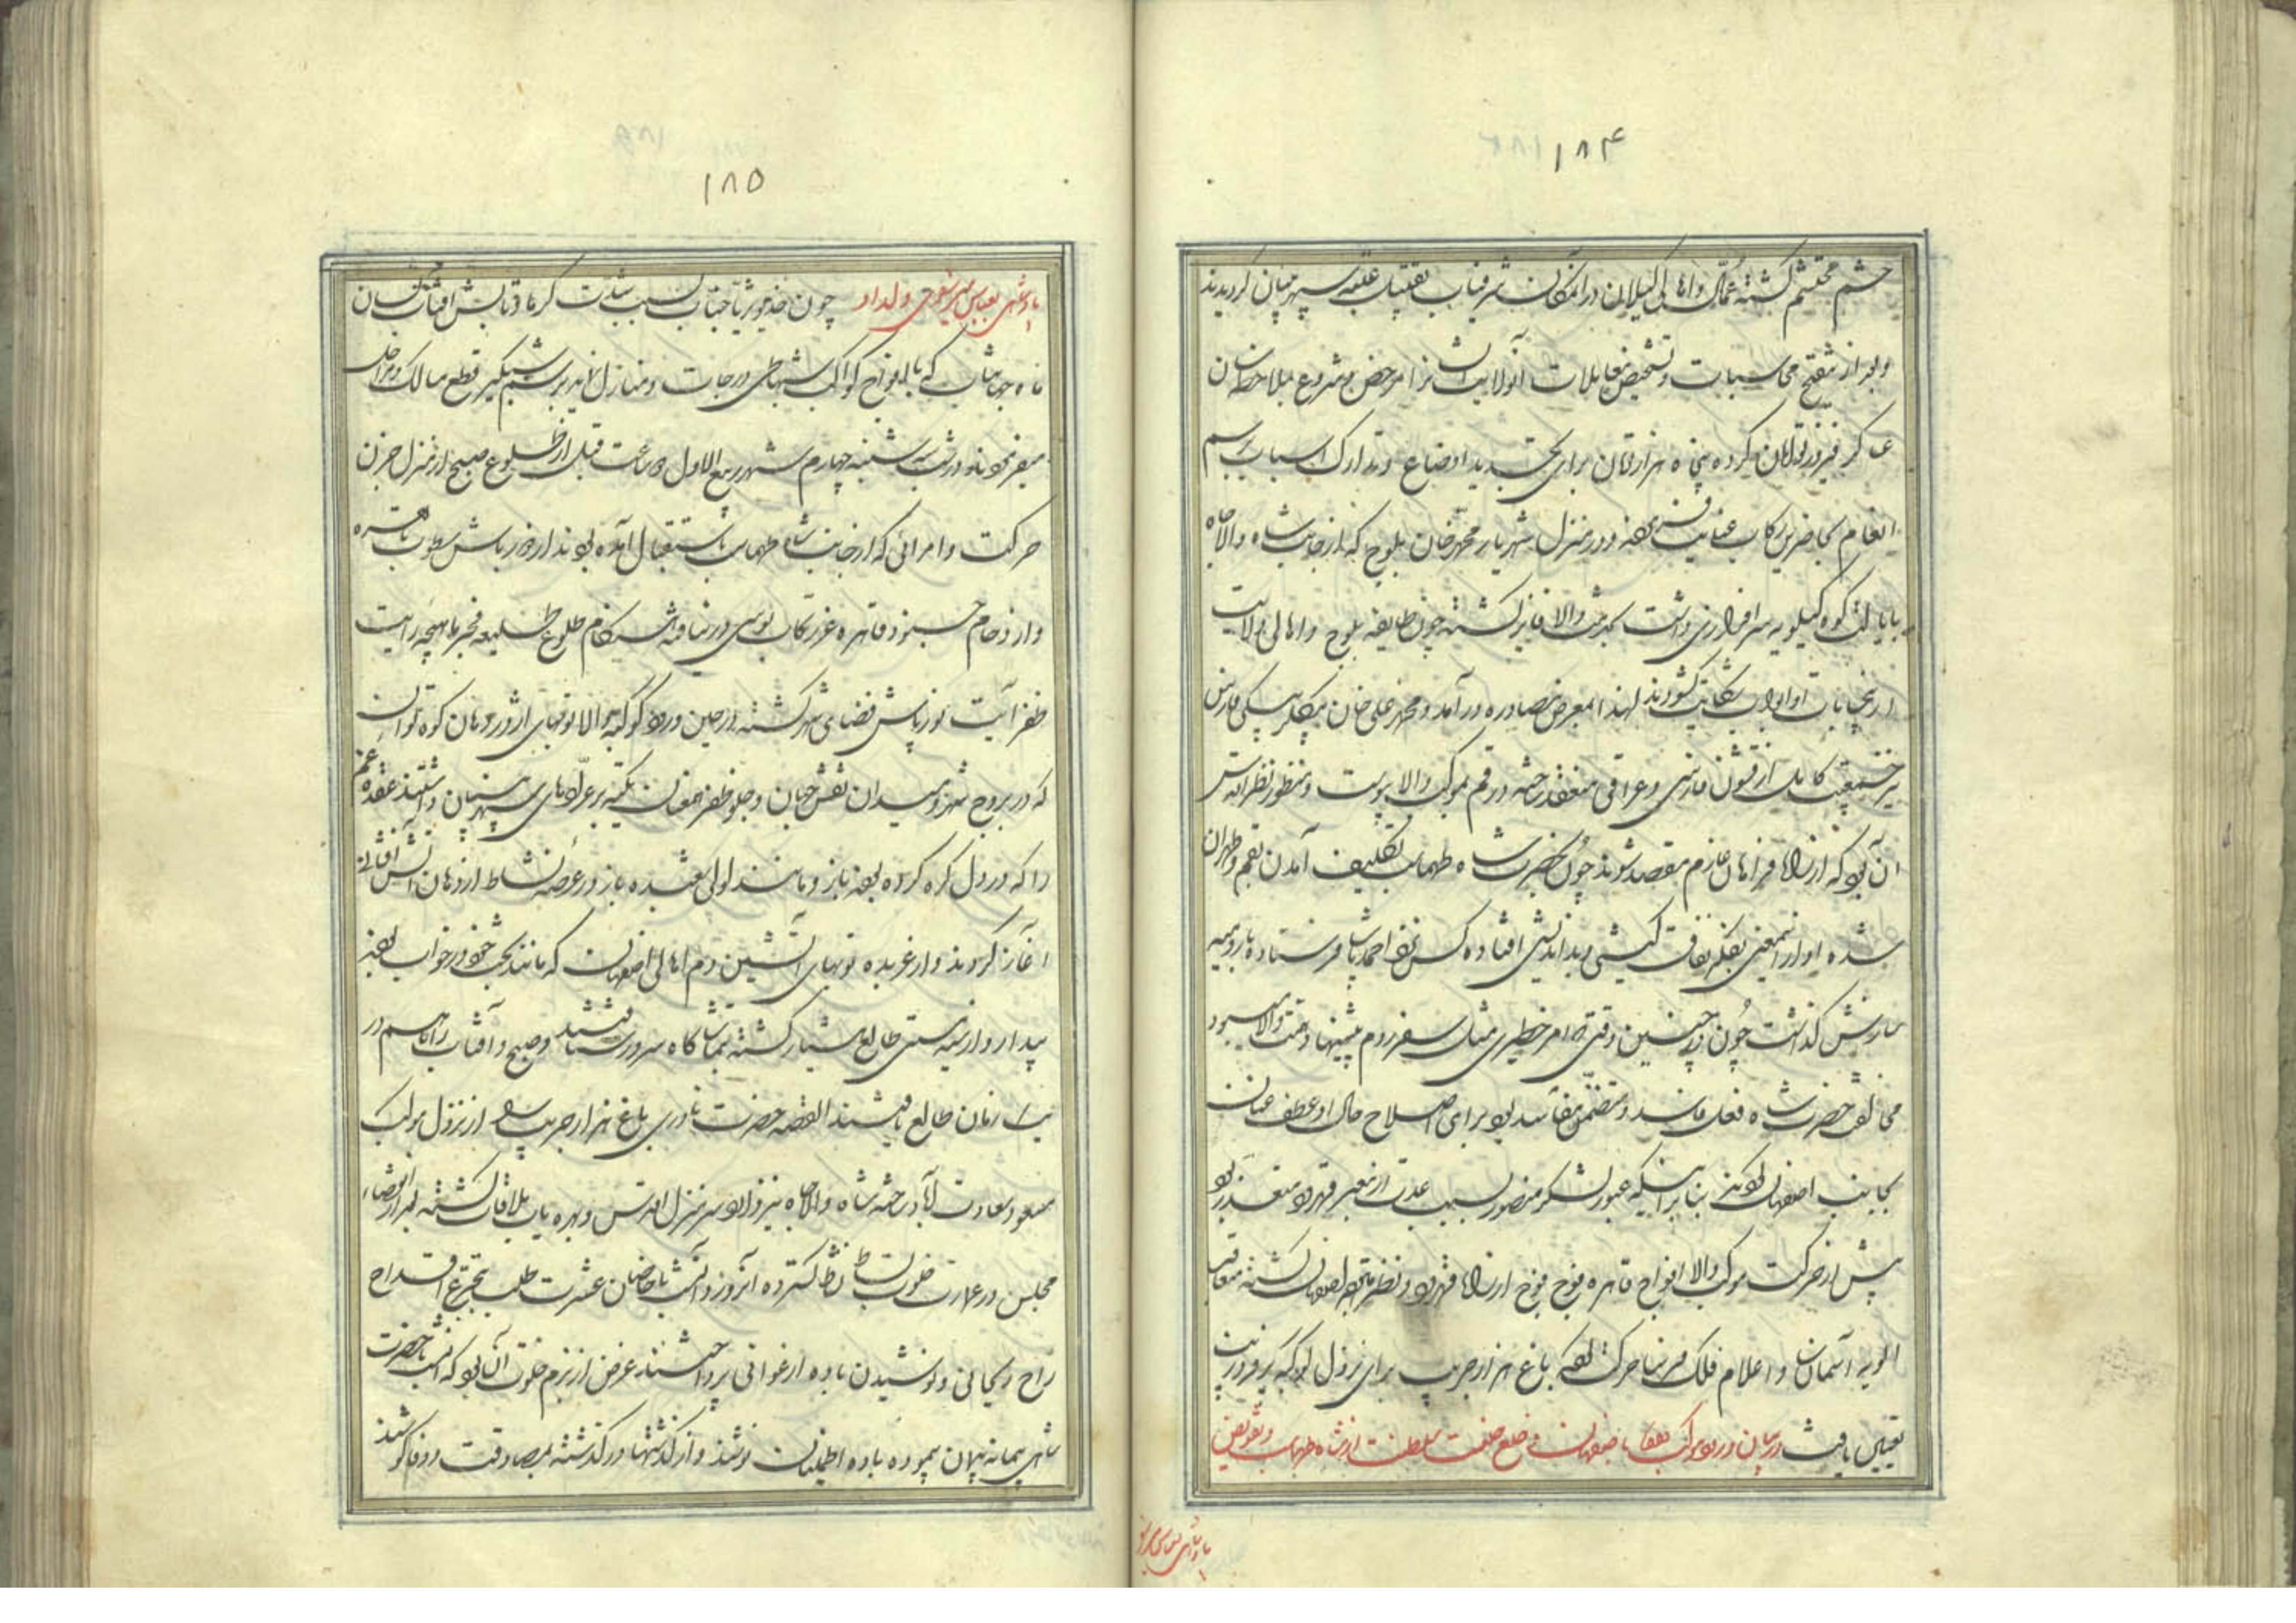 ۱۸۴
حشم محتشم گشته عمال و اهالی گیلان در آن مکان شرفیاب تقبیل عتبه سپهر بنیان گردیدند
و بعد از تنقیح محاسبات و تشخیص معاملات آنولایت ایشانرا مرخص و شروع بملاحظه سان
عساکر فیروز توامان کرده پنجاه هزار تومان برای تجدید اوضاع و تدارک اسباب برسم
انعام بحاضرین رکاب عنایت فرموده و در منزل شهریار محمد خان بلوچ که از جانب شاه والاجاه
بایالت کوه کیلویه سرافرازی داشت بخدمت والا فایز گشته چون طایفه بلوچ و اهالی ولایت
از نجابات او ابواب شکایت گشودند لهذا بمعرض مصادره در آمد و محمد علی خان بیگلربیگی فارس
نیز جمعیت کامل از قشون فارسی و عراقی منعقد ساخته در قم بموکب والا پیوست و منظور نظر اقدس
آن بود که از راه فراهان عازم مقصد شوند چون بحضرت شاه طهماسب تکلیف آمدن بقم و طهران
شده او از این معنی بفکر نفاق کیشی و بداندیشی افتاده کس نزد احمد پاشا فرستاده بارومیه
سازش گذاشت چون در چنین وقتی که امر خطیری مثل سفر روم پیشنهاد همت والا میبود
مخالفت حضرت شاه فعل فاسد و متضمن مفاسد بود برای اصلاح حال او عطف عنان
بجانب اصفهان نمودند بنابر اینکه عبور لشکر منصور بسبب عدت از معبر قهرود متعذر بود
پیش از حرکت موکب والا افواج قاهره فوج فوج از راه قهرود و نطنز متوجه اصفهان گشته متعاقب
الویه آسمان سا و اعلام فلک فرسا حرکت نموده باغ هزار جریب برای نزول کوکبه پرفر و زیب
تعیین یافت در بیان ورود موکب همایون باصفهان و خلع خلعت سلطنت از شاه طهماسب و تفویض
پادشاهی بعباس میرزا
۱۸۵
پادشاهی بعباس میرزای ولد او چون خدیو ثریا جناب بسبب شدت گرما و تابش آفتاب بسان
ماه جهانتاب که با افواج کواکب شبها طی درجات و منازل نماید برسم شبگیر قطع مسالک و مراحل
میفرمودند در شب سه شنبه چهارم شهر ربیع الاول ۵ ساعت قبل از طلوع صبح از منزل جزن
حرکت و امرائی که از جانب شاه طهماسب باستقبال آمده بودند از دورباش سطوت باهره
و ازدحام جنود قاهره عز رکاب بوسی در نیافته هنگام طلوع طلیعه فجر ماهچه رایت
ظفر آیت نورپاش فضای شهر گشته در حین ورود کوکبه والا توپهای اژدر دهان کوه توان
که در بروج شهر و میدان نقش جهان و جلو ظفر عنان تکیه بر عراده های سپهرسان داشتند عقده غم
را که در دل گره کرده بودند باز و مانند لولی شعبده باز در عرصه نشاط از دهان آتش افشانی
آغاز کردند و از عربده توپهای آتشین دم اهالی اصفهان که مانند بخت خود در خواب بودند
بیدار و از نیستی طالع هشیار گشته بتماشاگاه سرور شتافتند و صبح و آفتاب را باهم در
یک زمان طالع یافتند القصه حضرت نادری باغ هزار جریب را از نزول موکب
مسعود سعادت آباد ساخته شاه والاجاه نیز وارد سرمنزل اقدس و بهره یاب ملاقات گشته بعد از انقضاء
مجلس در عمارت خلوت بساط نشاط گسترده آنروز و آنشب با خاصان عشرت طلب بتجرع اقداح
راح ریحانی و نوشیدن باده ارغوانی پرداختند غرض از بزم خلوت آن بود که آنشب با حضرت
شاهی پیمانه پیمان پیموده باده اطمینان نوشند و از گذشتها درگذشته بمصادقت و وفا کوشند